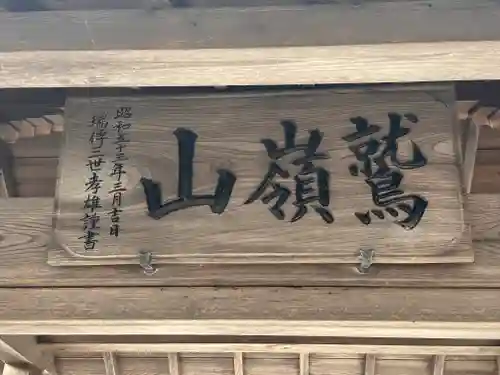 鷲嶺山
昭和五十三年三月吉日
佛傳三世孝雄謹書